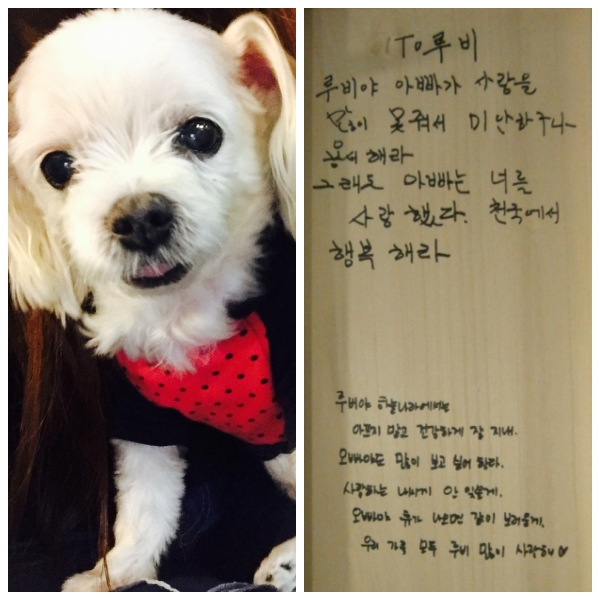 To 루비
루비야 아빠가 사랑을
많이 못줘서 미안하구나
용서해라
그래도 아빠는 너를
사랑했다. 천국에서
행복해라
루비야 하늘나라에서는
아프지 말고 건강하게 잘 지내.
오빠야도 많이 보고 싶어 한다.
사랑하는 내새끼 안 잊을게.
오빠야 휴가 나오면 같이 보러올게.
우리 가족 모두 루비 많이 사랑해♡